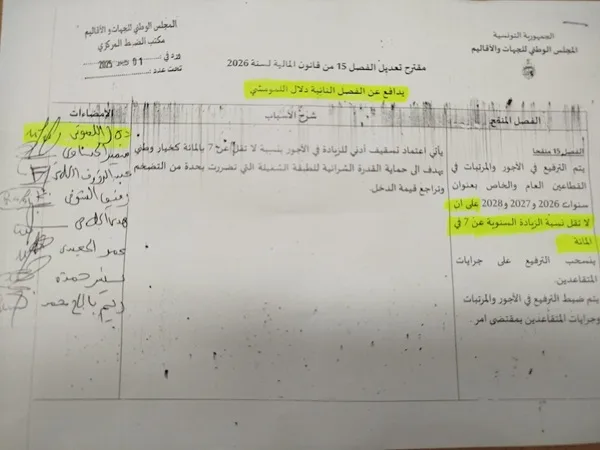 الجمهورية التونسية
المجلس الوطني للجهات والأقاليم
المجلس الوطني للجهات والأقاليم
مكتب الضبط المركزي
01
2025
تحت عدد:
مقترح تعديل الفصل 15 من قانون المالية لسنة 2026
يدافع عن الفصل النائبة دلال اللموشي
الفصل المنقح
شرح الأسباب
الإمضاءات
الفصل 15 منقحا
يتم الترفيع في الأجور والمرتبات في
القطاعين العام والخاص بعنوان
سنوات 2026 و2027 و2028 على ان
لا تقل نسبة الزيادة السنوية عن 7 في
المائة
ينسحب الترفيع على جرايات
المتقاعدين.
يتم ضبط الترفيع في الأجور والمرتبات
وجرايات المتقاعدين بمقتضى امر.
يأتي اعتماد تسقيف أدنى للزيادة في الأجور بنسبة لا تقل عن 7 بالمائة كخيار وطني
يهدف الى حماية القدرة الشرائية للطبقة الشغيلة التي تضررت بحدة من التضخم
وتراجع قيمة الدخل.
دلال اللموشي